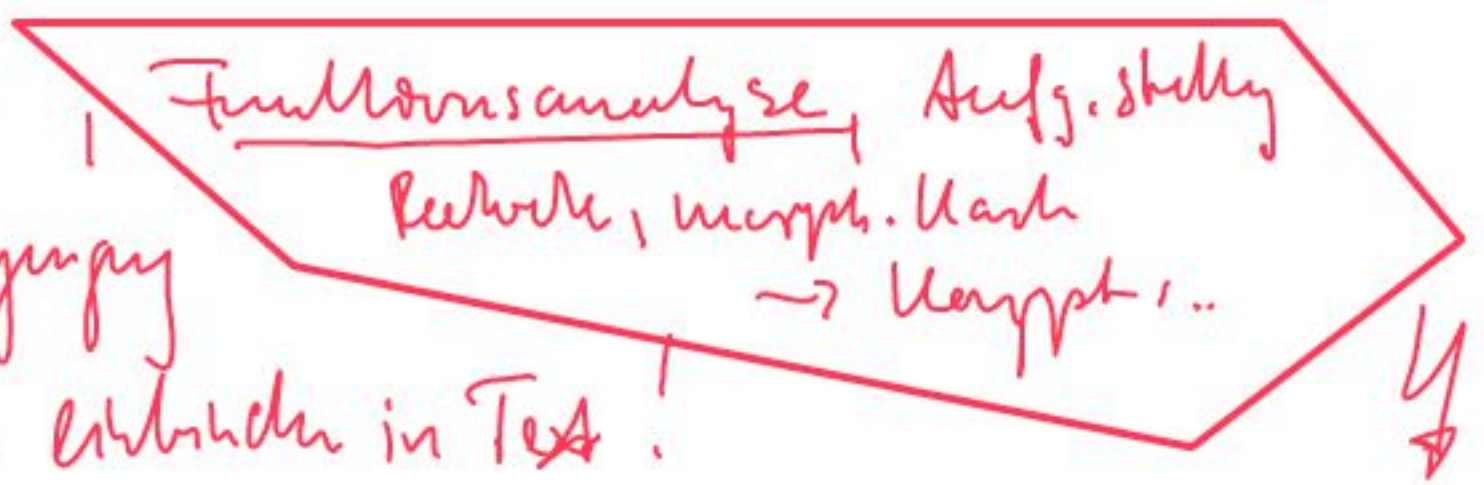 Funktionsanalyse, Aufg.stellg
Recherche, morph. Kasten
→ Konzept...
einbinden in Text!